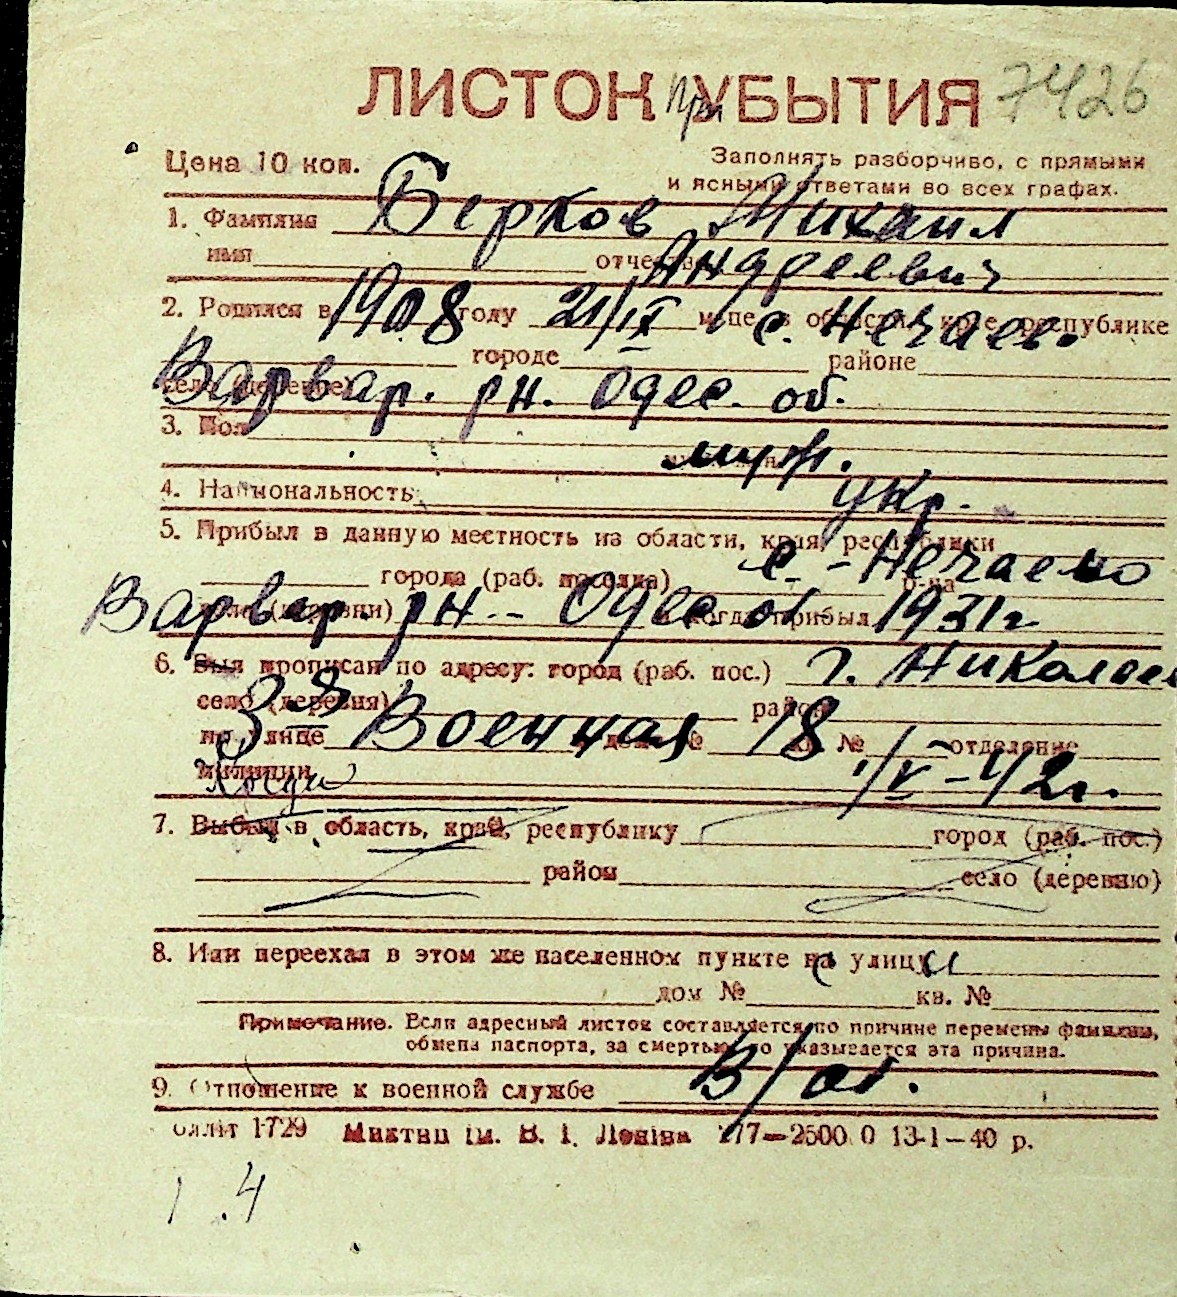 ЛИСТОК При УБЫТИЯ 7426
Цена 10 коп. Заполнять разборчиво, с прямыми
и ясными ответами во всех графах.
1. Фамилия Берков Михаил
имя отчество Андреевич
2. Родился в 1908 году 21/IX м-це в области, крае, республике с. Нечаево
городе районе
село (деревне) Варвар. рн. Одес. об.
3. Пол муж.
4. Национальность укр.
5. Прибыл в данную местность из области, края, республики
города (раб. поселка) р-на с. - Нечаево
села (деревни) Варвар. рн. - Одес об и когда прибыл 1931 г
6. Был прописан по адресу: город (раб. пос.) г. Николаев
село (деревня) район
по улице 3-я Военная дом № 18 кв. № отделение
милиции Когда 1/V-42г.
7. Выбыл в область, край, республику город (раб. пос.)
район село (деревню)
8. Или переехал в этом же населенном пункте на улицу
дом № кв. №
Примечание. Если адресный листок составляется по причине перемены фамилии,
обмена паспорта, за смертью, то указывается эта причина.
9. Отношение к военной службе В/об.
1729 им. В. І. Леніна 177—2500 0 13-1—40 р.
1.4